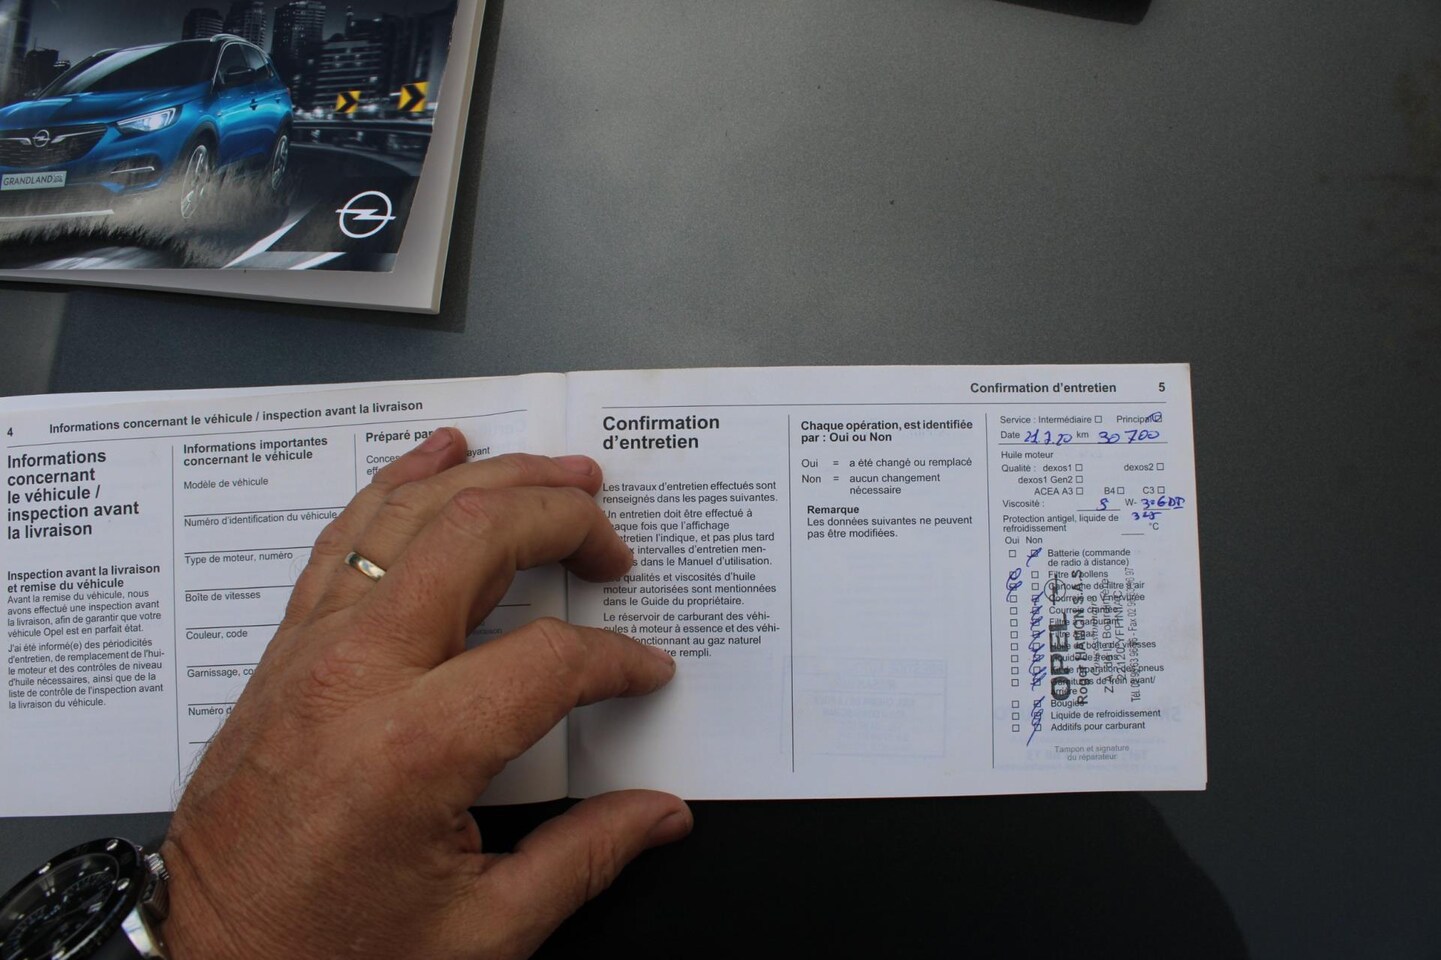 GRANDLAND
4 Informations concernant le véhicule / inspection avant la livraison
Informations
concernant
le véhicule /
inspection avant
la livraison
Inspection avant la livraison
et remise du véhicule
Avant la remise du véhicule, nous
avons effectué une inspection avant
la livraison, afin de garantir que votre
véhicule Opel est en parfait état.
J'ai été informé(e) des périodicités
d'entretien, de remplacement de l'hui-
le moteur et des contrôles de niveau
d'huile nécessaires, ainsi que de la
liste de contrôle de l'inspection avant
la livraison du véhicule.
Informations importantes
concernant le véhicule
Modèle de véhicule
Numéro d'identification du véhicule
Type de moteur, numéro
Boîte de vitesses
Couleur, code
Garnissage, co
Numéro d
Préparé par
Conces ayant
effe
Confirmation d'entretien 5
Confirmation
d'entretien
Les travaux d'entretien effectués sont
renseignés dans les pages suivantes.
Un entretien doit être effectué à
chaque fois que l'affichage
entretien l'indique, et pas plus tard
x intervalles d'entretien men-
s dans le Manuel d'utilisation.
qualités et viscosités d'huile
moteur autorisées sont mentionnées
dans le Guide du propriétaire.
Le réservoir de carburant des véhi-
cules à moteur à essence et des véhi-
fonctionnant au gaz naturel
tre rempli.
Chaque opération, est identifiée
par : Oui ou Non
Oui = a été changé ou remplacé
Non = aucun changement
nécessaire
Remarque
Les données suivantes ne peuvent
pas être modifiées.
Service : Intermédiaire Principal
Date 21.7.20 km 30 700
Huile moteur
Qualité : dexos1 dexos2
dexos1 Gen2
ACEA A3 B4 C3
Viscosité : 5 W-
Protection antigel, liquide de
refroidissement °C
Oui Non
Batterie (commande
de radio à distance)
Filtre à pollens
Cartouche de filtre à air
Courroie en V nervurée
Courroie crantée
Filtre à carburant
Filtre à gaz
Huile de boîte de vitesses
Liquide de freins
Kit de réparation des pneus
Garnitures de frein avant/
arrière
Bougies
Liquide de refroidissement
Additifs pour carburant
Tampon et signature
du réparateur
OPEL
Roger HAMON S.A.S